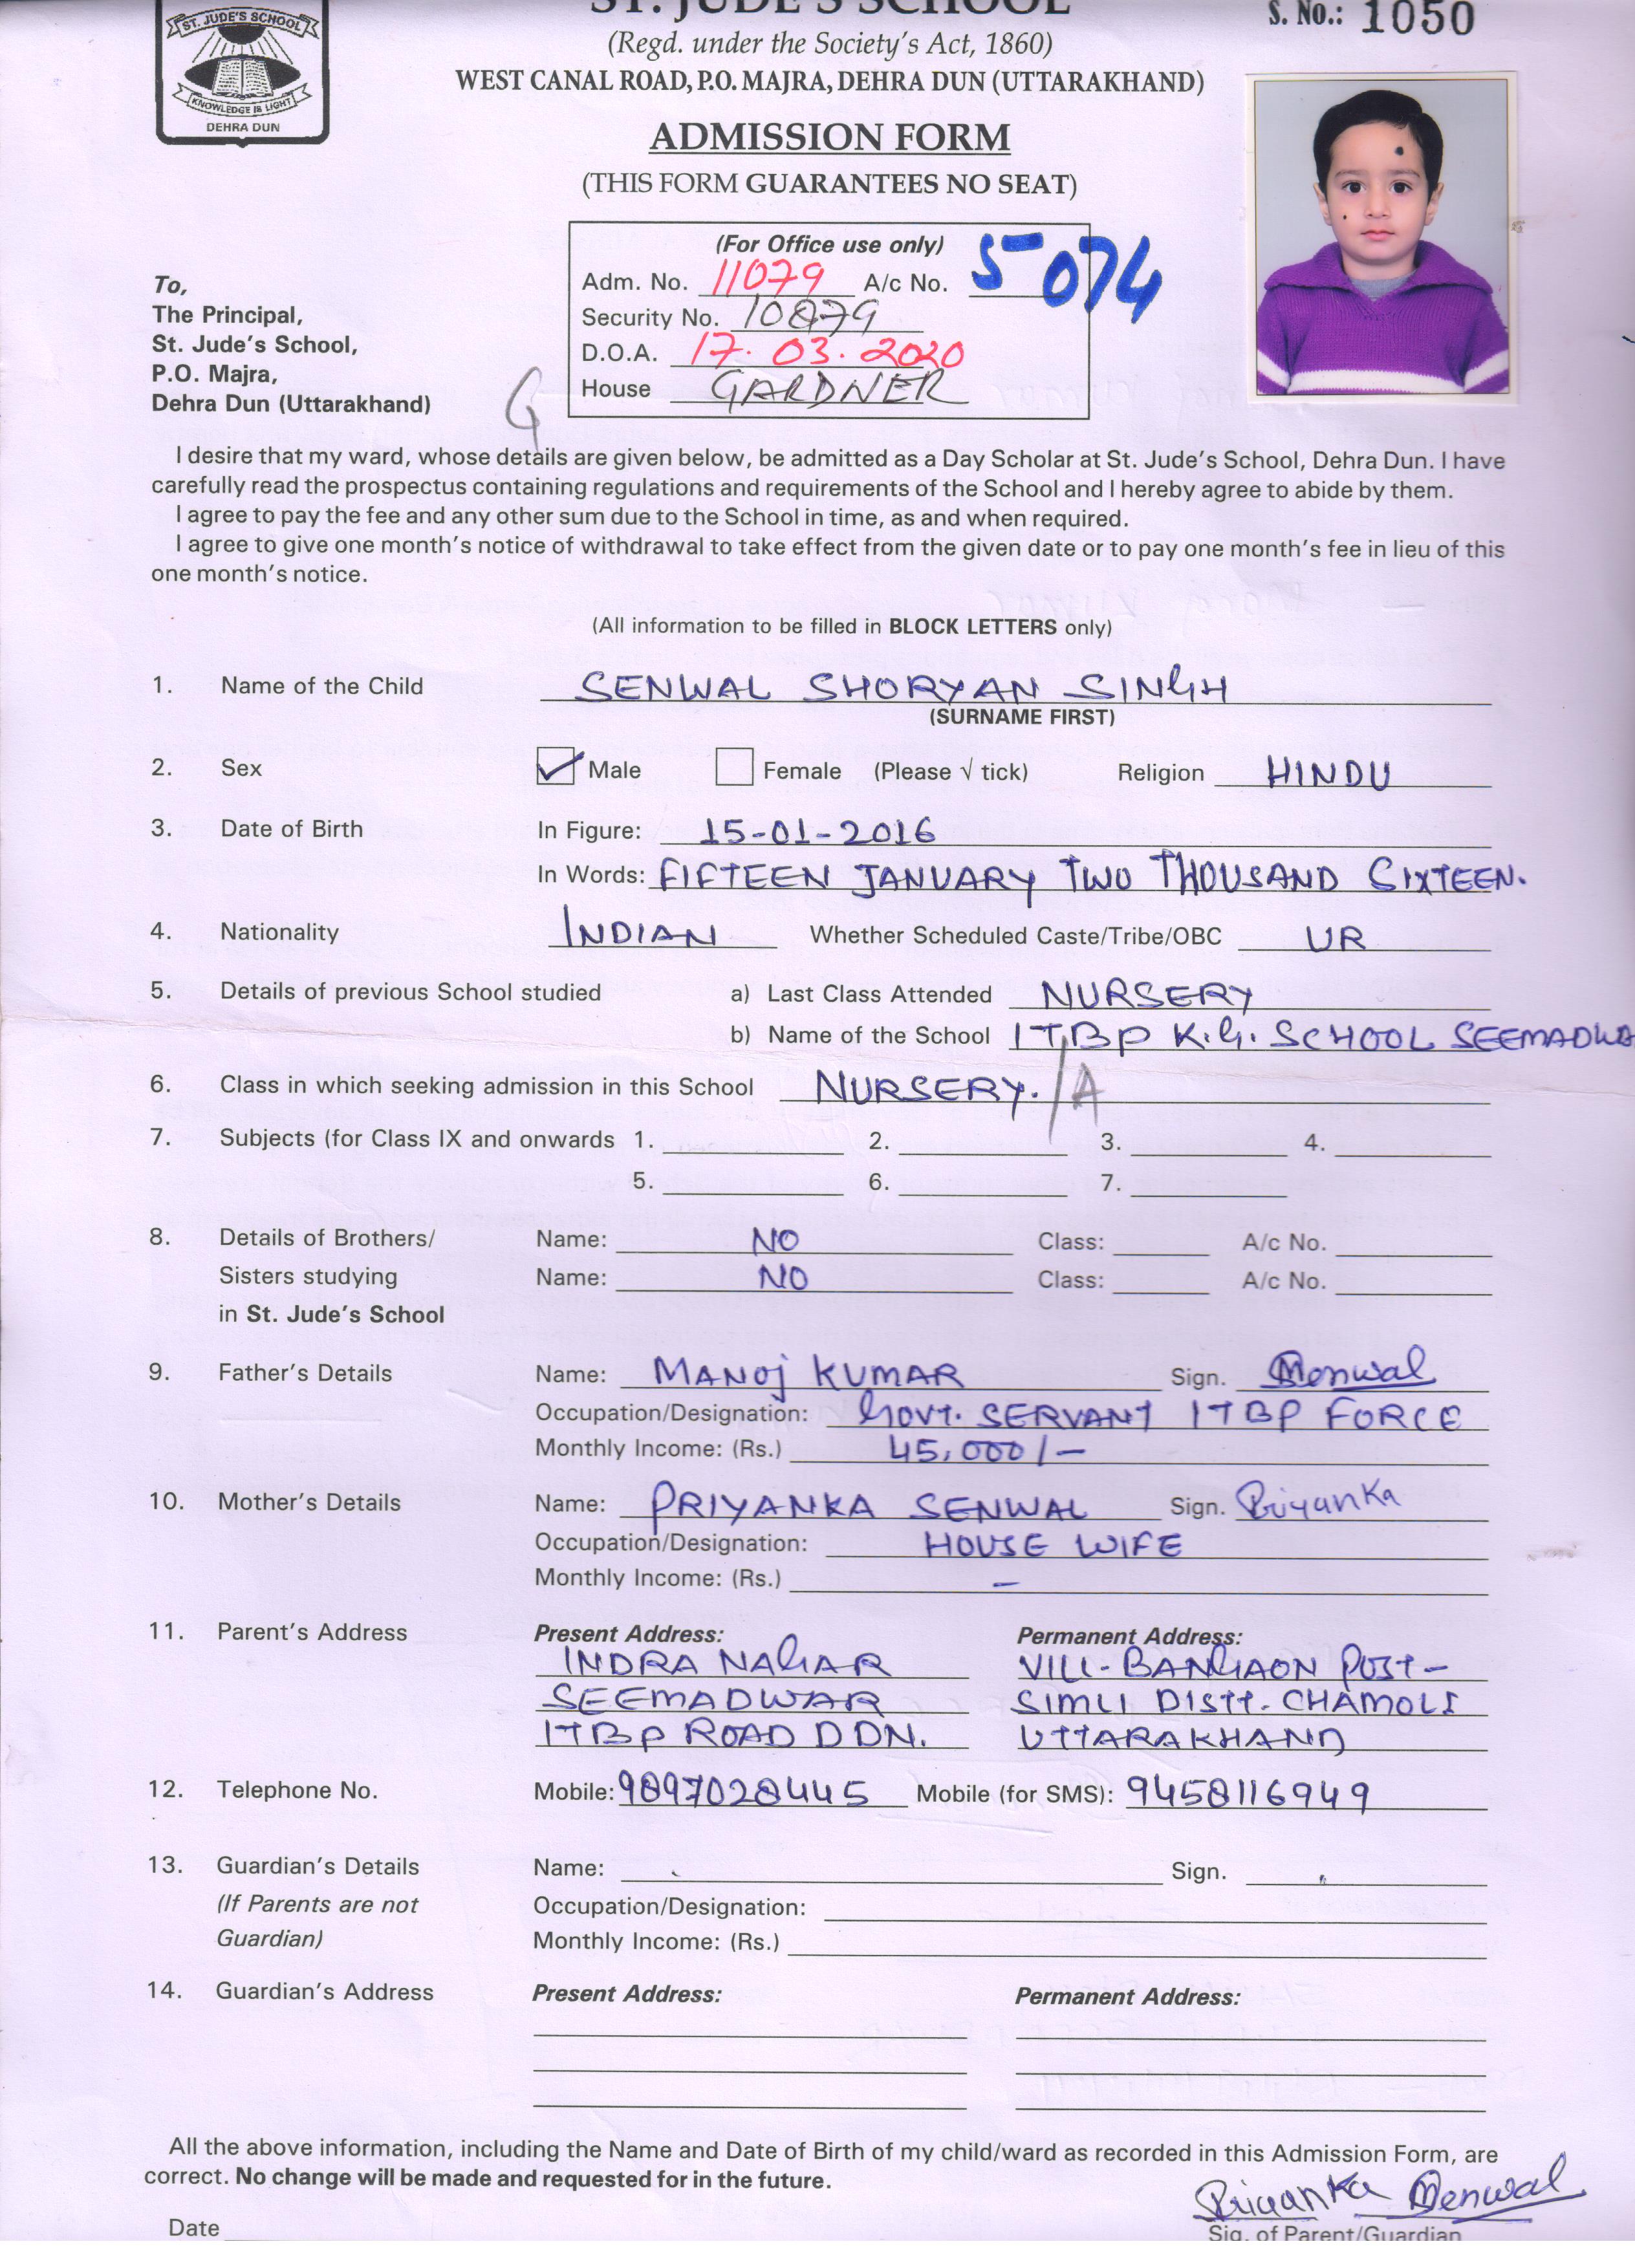 ST. JUDE'S SCHOOL
S. No.: 1050
ST. JUDE'S SCHOOL
KNOWLEDGE IS LIGHT
DEHRA DUN
(Regd. under the Society's Act, 1860)
WEST CANAL ROAD, P.O. MAJRA, DEHRA DUN (UTTARAKHAND)
ADMISSION FORM
(THIS FORM GUARANTEES NO SEAT)
(For Office use only)
Adm. No. 11079 A/c No. 5074
Security No. 10879
D.O.A. 17.03.2020
House GARDNER
G
To,
The Principal,
St. Jude's School,
P.O. Majra,
Dehra Dun (Uttarakhand)
I desire that my ward, whose details are given below, be admitted as a Day Scholar at St. Jude's School, Dehra Dun. I have
carefully read the prospectus containing regulations and requirements of the School and I hereby agree to abide by them.
I agree to pay the fee and any other sum due to the School in time, as and when required.
I agree to give one month's notice of withdrawal to take effect from the given date or to pay one month's fee in lieu of this
one month's notice.
(All information to be filled in BLOCK LETTERS only)
1. Name of the Child SENWAL SHORYAN SINGH
(SURNAME FIRST)
2. Sex Male Female (Please √ tick) Religion HINDU
3. Date of Birth In Figure: 15-01-2016
In Words: FIFTEEN JANUARY TWO THOUSAND SIXTEEN.
4. Nationality INDIAN Whether Scheduled Caste/Tribe/OBC UR
5. Details of previous School studied a) Last Class Attended NURSERY
b) Name of the School ITBP K.G. SCHOOL SEEMADWA
6. Class in which seeking admission in this School NURSERY. /A
7. Subjects (for Class IX and onwards 1. 2. 3. 4.
5. 6. 7.
8. Details of Brothers/ Name: NO Class: A/c No.
Sisters studying Name: NO Class: A/c No.
in St. Jude's School
9. Father's Details Name: MANOJ KUMAR Sign. Menwal
Occupation/Designation: GOVT. SERVANT ITBP FORCE
Monthly Income: (Rs.) 45,000/-
10. Mother's Details Name: PRIYANKA SENWAL Sign. Priyanka
Occupation/Designation: HOUSE WIFE
Monthly Income: (Rs.) -
11. Parent's Address Present Address: Permanent Address:
INDRA NAGAR VILL-BANGAON POST-
SEEMADWAR SIMLI DISTT. CHAMOLI
ITBP ROAD DDN. UTTARAKHAND
12. Telephone No. Mobile: 9897028445 Mobile (for SMS): 9458116949
13. Guardian's Details Name: Sign.
(If Parents are not Occupation/Designation:
Guardian) Monthly Income: (Rs.)
14. Guardian's Address Present Address: Permanent Address:
All the above information, including the Name and Date of Birth of my child/ward as recorded in this Admission Form, are
correct. No change will be made and requested for in the future.
Priyanka Menwal
Date Sig. of Parent/Guardian